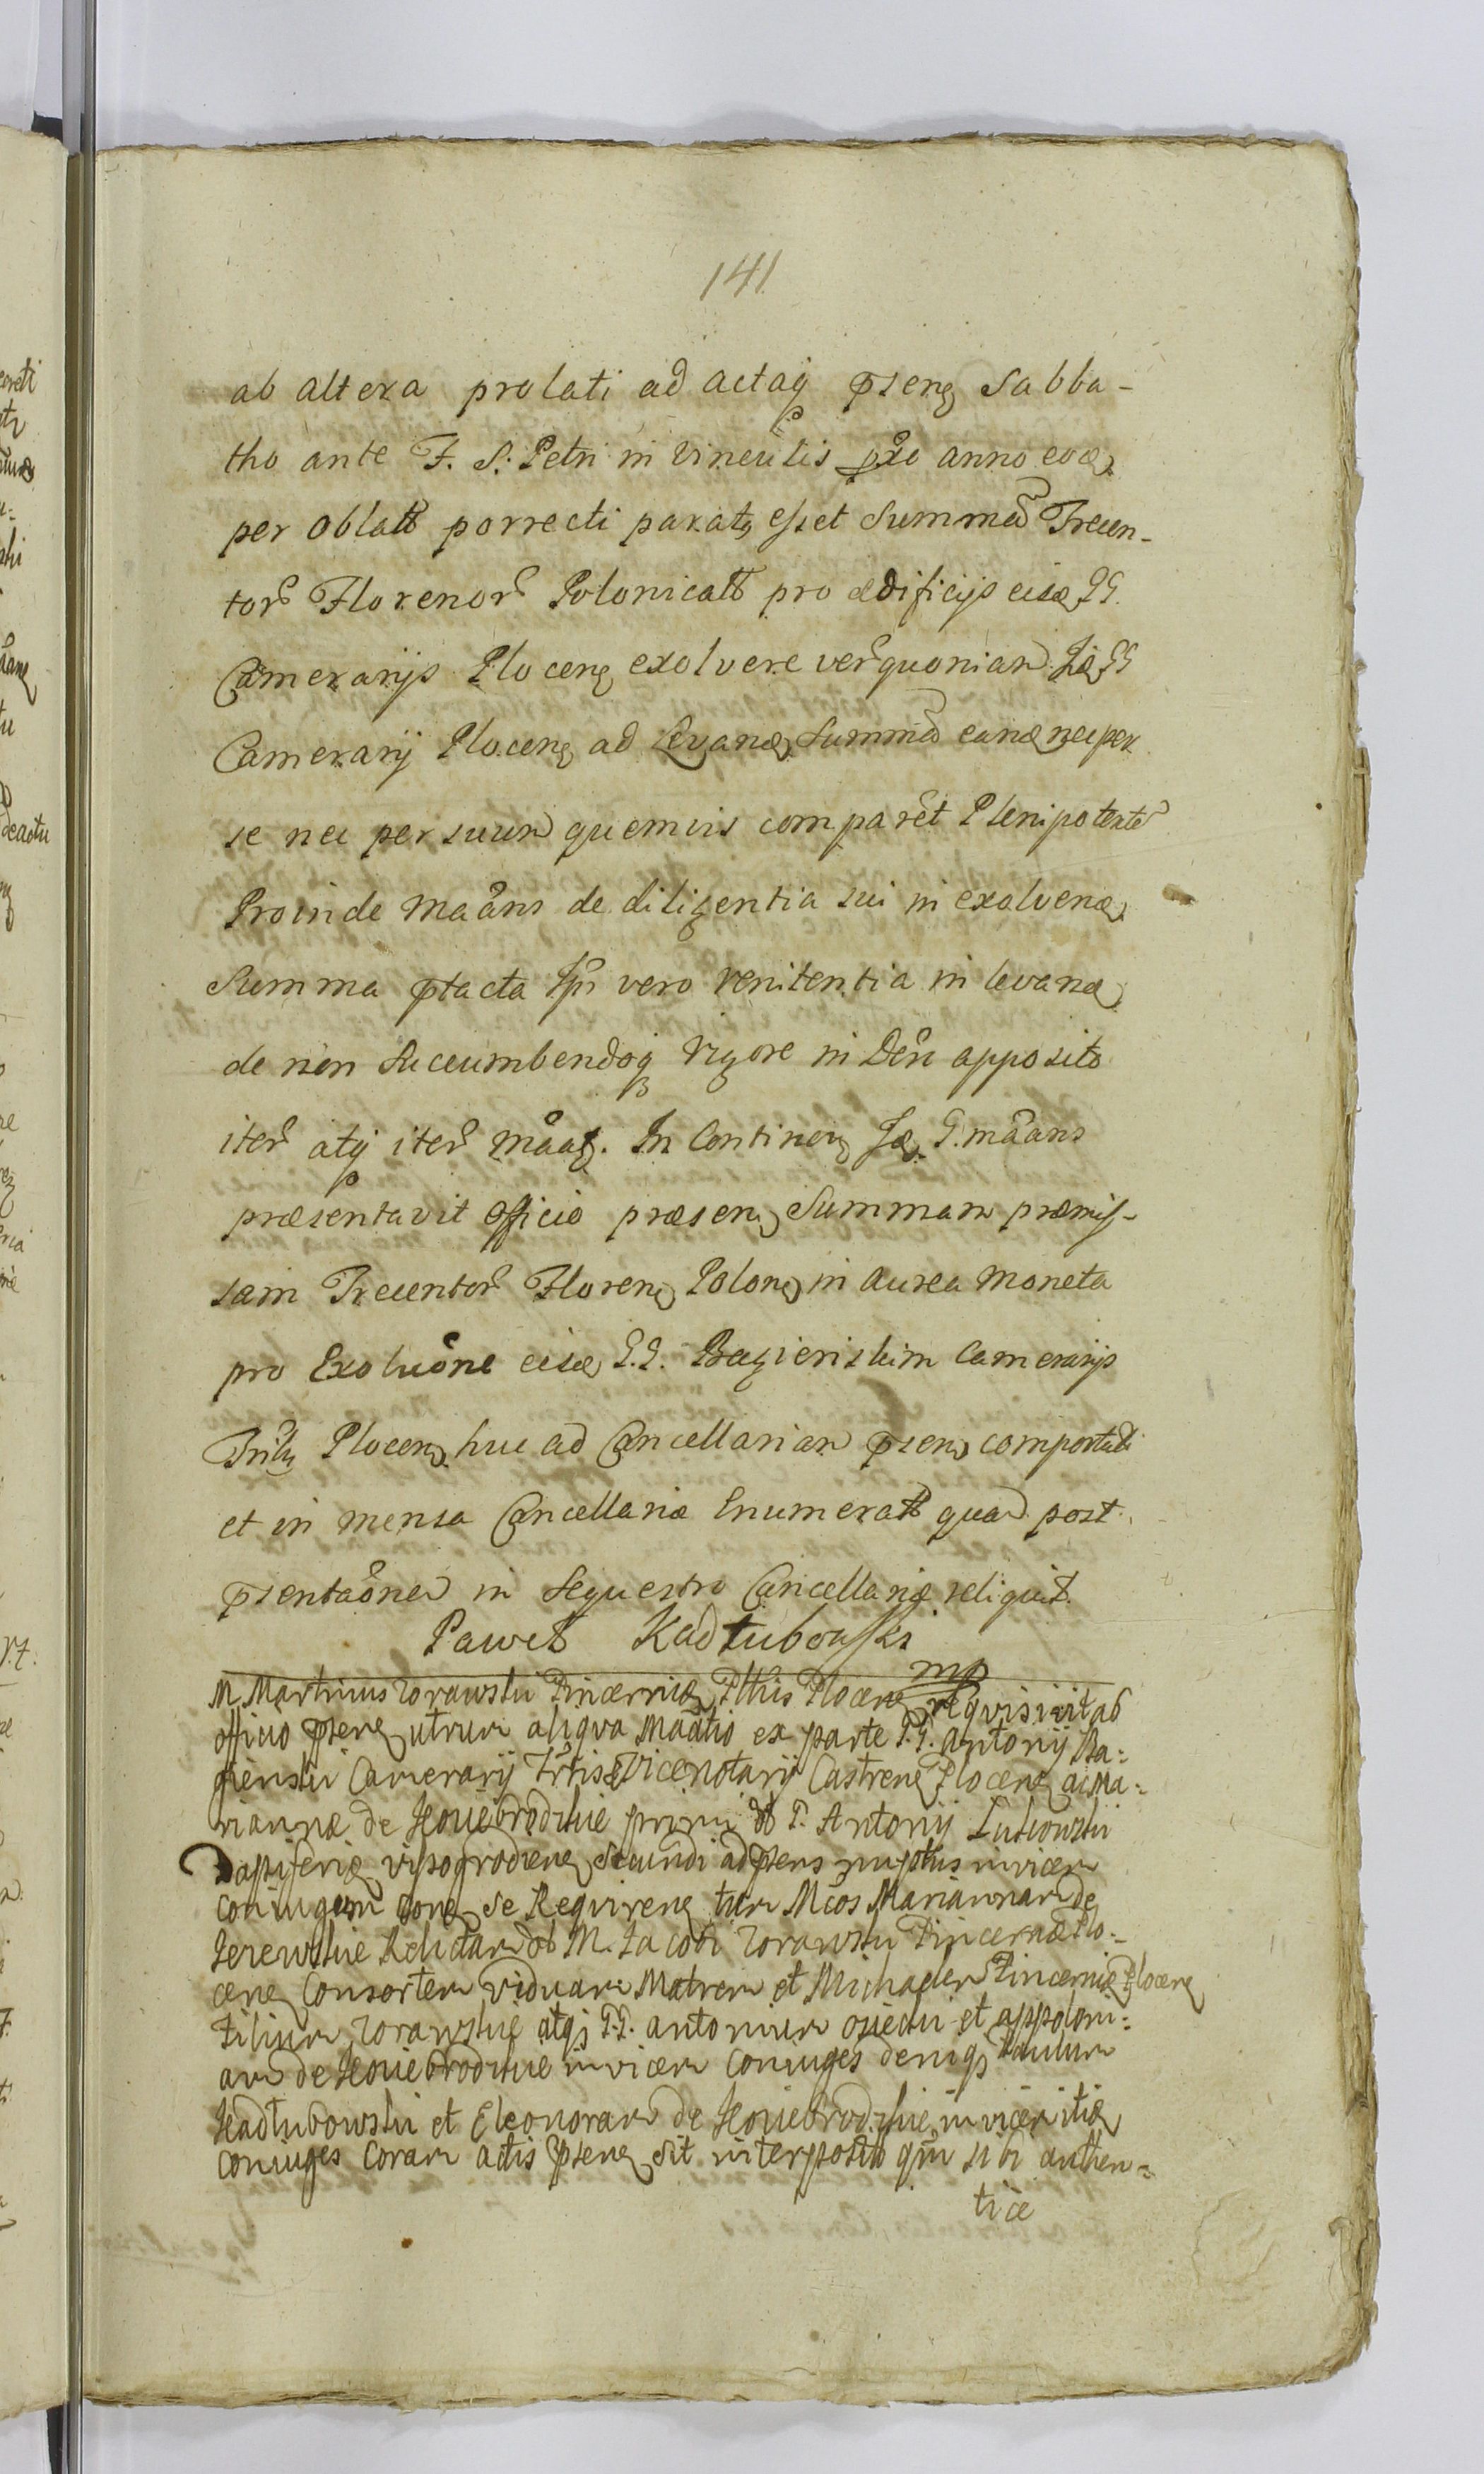 141
ab altera prolati ad actaq pseng Sabba-
tho ante F. S. Petri in Vinculis pxo anno eod
per oblatt porrecti parat esset Summa Trecen-
tor Florenor Polonicall pro ædificijs eisd GG.
Camerarijs Ploceng exolvere ver quoniam Id GG
Camerarij Ploceng ad Levand Summa eand nec per
se nec per suum quemvis comparet Plenipotente
Proinde Maans de diligentia sui in exolvend
Summa ptacta Ipi vero renitentia in levand
de non Succumbendoq Vigore in Deu apposito
iter atq iter maat. In Contineng Id G. maans
præsentavit Officio præseng Summam præmis-
sam Trecentor Floreng Polong in aurea Moneta
pro Exoluone eisd G.G. Bagienskim Camerarijs
Ploceng huc ad Cancellariam pseng comportat
et in mensa Cancellariæ Enumerat quam post
psentaone in Sequestro Cancellariæ reliquit.
Paweł Kadłubowski
mp
M. Martinus Zorawski Pincernid Pttus Ploceng reqvisivit ab
officio pseng utrum aliqva Maatio ex parte G.G. Antonij Ba=
gienski Camerarij Trtis Vicenotarij Castreng Ploceng ac Ma=
riannæ de Niniebrodzkie primi ol G. Antonij Lutkowski
Dapiferid Vissogrodieng Secundi ad psens invicem
coniugum Se Reqvireng tum Mcos Mariannam de
Jerewskie Relictam ol M. Jacobi Zorawski Pincernæ Plo=
ceng Consortem Viduam Matrem et Michaelem Pincernid Ploceng
Filium Zorawskie atqs G.G. Antonium Osiecki et Appoloni=
am de Niniebrodzkie invicem Coniuges deniqs Paulum
Kadłubowski et Eleonoram de Niniebrodzkie invicem itid
coniuges Coram actis pseng sit interposita qm sibi authen=
tice